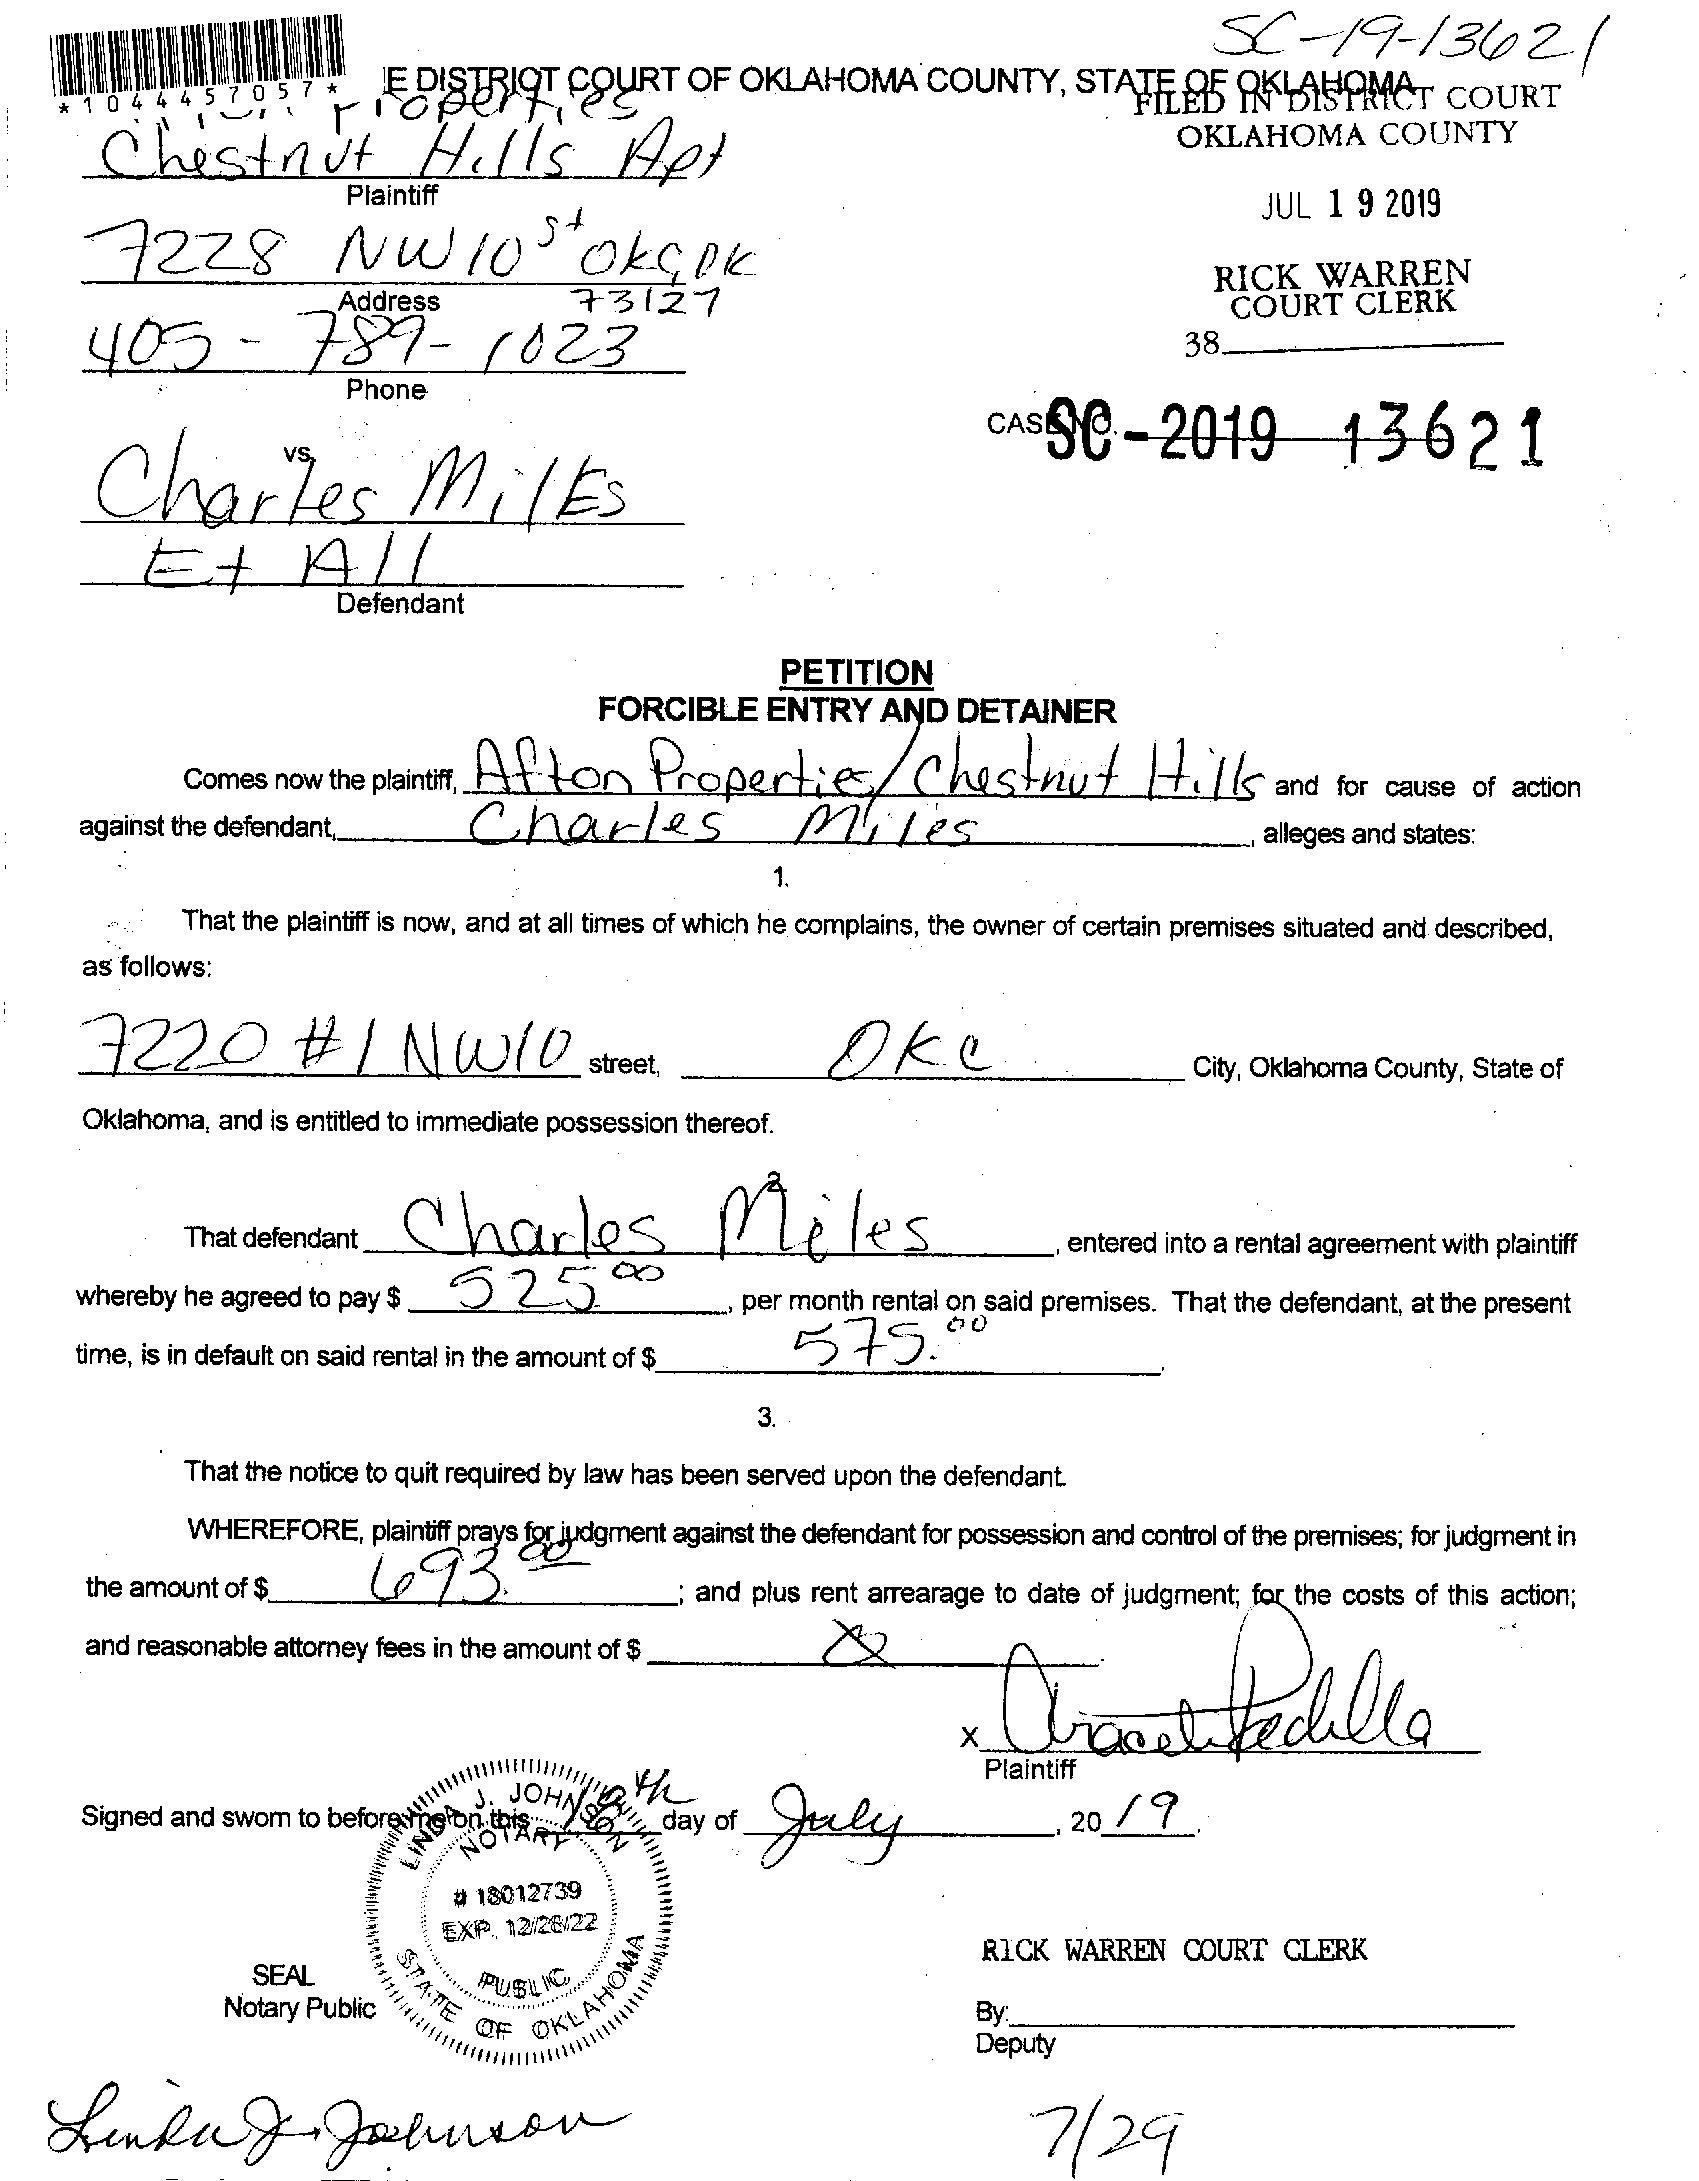 SC-19-13621
*1044457057*
E DISTRICT COURT OF OKLAHOMA COUNTY, STATE OF OKLAHOMA
Properties
FILED IN DISTRICT COURT
OKLAHOMA COUNTY
Chestnut Hills Apt
Plaintiff
JUL 19 2019
7228 NW 10 st OKC, OK
73127
Address
RICK WARREN
COURT CLERK
405-789-1023
Phone
38
CASE NO. SC-2019 13621
vs.
Charles MilEs
Et All
Defendant
PETITION
FORCIBLE ENTRY AND DETAINER
Comes now the plaintiff, Afton Properties/Chestnut Hills and for cause of action
against the defendant, Charles Miles, alleges and states:
1.
That the plaintiff is now, and at all times of which he complains, the owner of certain premises situated and described,
as follows:
7220 #1 NW10 street, OKC City, Oklahoma County, State of
Oklahoma, and is entitled to immediate possession thereof.
2.
That defendant Charles Miles, entered into a rental agreement with plaintiff
whereby he agreed to pay $ 525.00, per month rental on said premises. That the defendant, at the present
time, is in default on said rental in the amount of $ 575.00.
3.
That the notice to quit required by law has been served upon the defendant.
WHEREFORE, plaintiff prays for judgment against the defendant for possession and control of the premises; for judgment in
the amount of $ 693.00; and plus rent arrearage to date of judgment; for the costs of this action;
and reasonable attorney fees in the amount of $
x Araceli Padilla
Plaintiff
Signed and sworn to before me on this 18th day of July, 2019.
LINDA J. JOHNSON
NOTARY
# 18012739
EXP. 12/28/22
PUBLIC
STATE OF OKLAHOMA
SEAL
Notary Public
RICK WARREN COURT CLERK
By:
Deputy
Linda J. Johnson
7/29